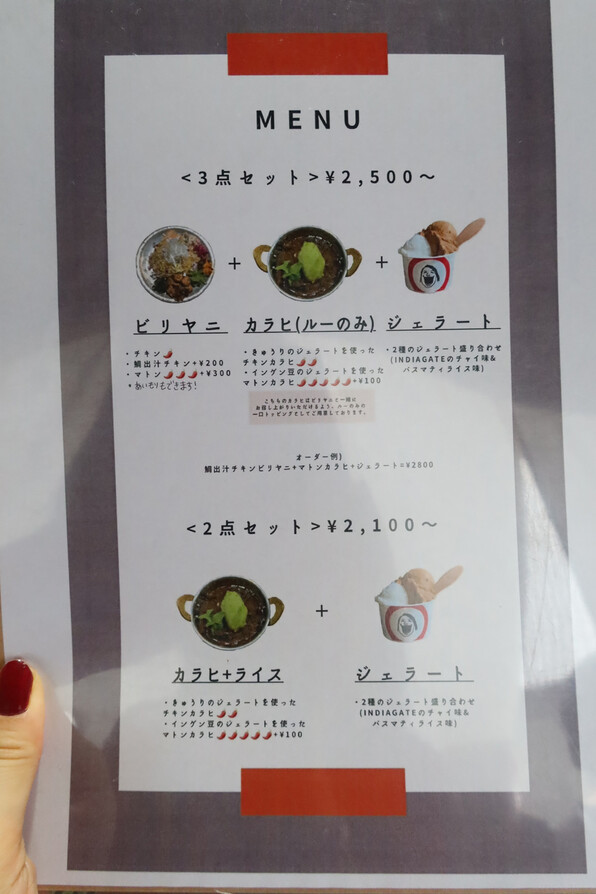 MENU
<3点セット>¥2,500〜
+
+
ビリヤニ カラヒ(ルーのみ) ジェラート
・チキン🌶
・鯛出汁チキン+¥200
・マトン🌶🌶🌶+¥300
*あいもりもできます!
・きゅうりのジェラートを使った
チキンカラヒ🌶🌶
・イングン豆のジェラートを使った
マトンカラヒ🌶🌶🌶🌶🌶+¥100
・2種のジェラート盛り合わせ
(INDIAGATEのチャイ味&
バスマティライス味)
こちらのカラヒはビリヤニと一緒に
お召し上がりいただけるよう、ルーのみの
一口トッピングとしてご用意しております。
オーダー例)
鯛出汁チキンビリヤニ+マトンカラヒ+ジェラート=¥2800
<2点セット>¥2,100〜
+
カラヒ+ライス ジェラート
・きゅうりのジェラートを使った
チキンカラヒ🌶🌶
・イングン豆のジェラートを使った
マトンカラヒ🌶🌶🌶🌶🌶+¥100
・2種のジェラート盛り合わせ
(INDIAGATEのチャイ味&
バスマティライス味)